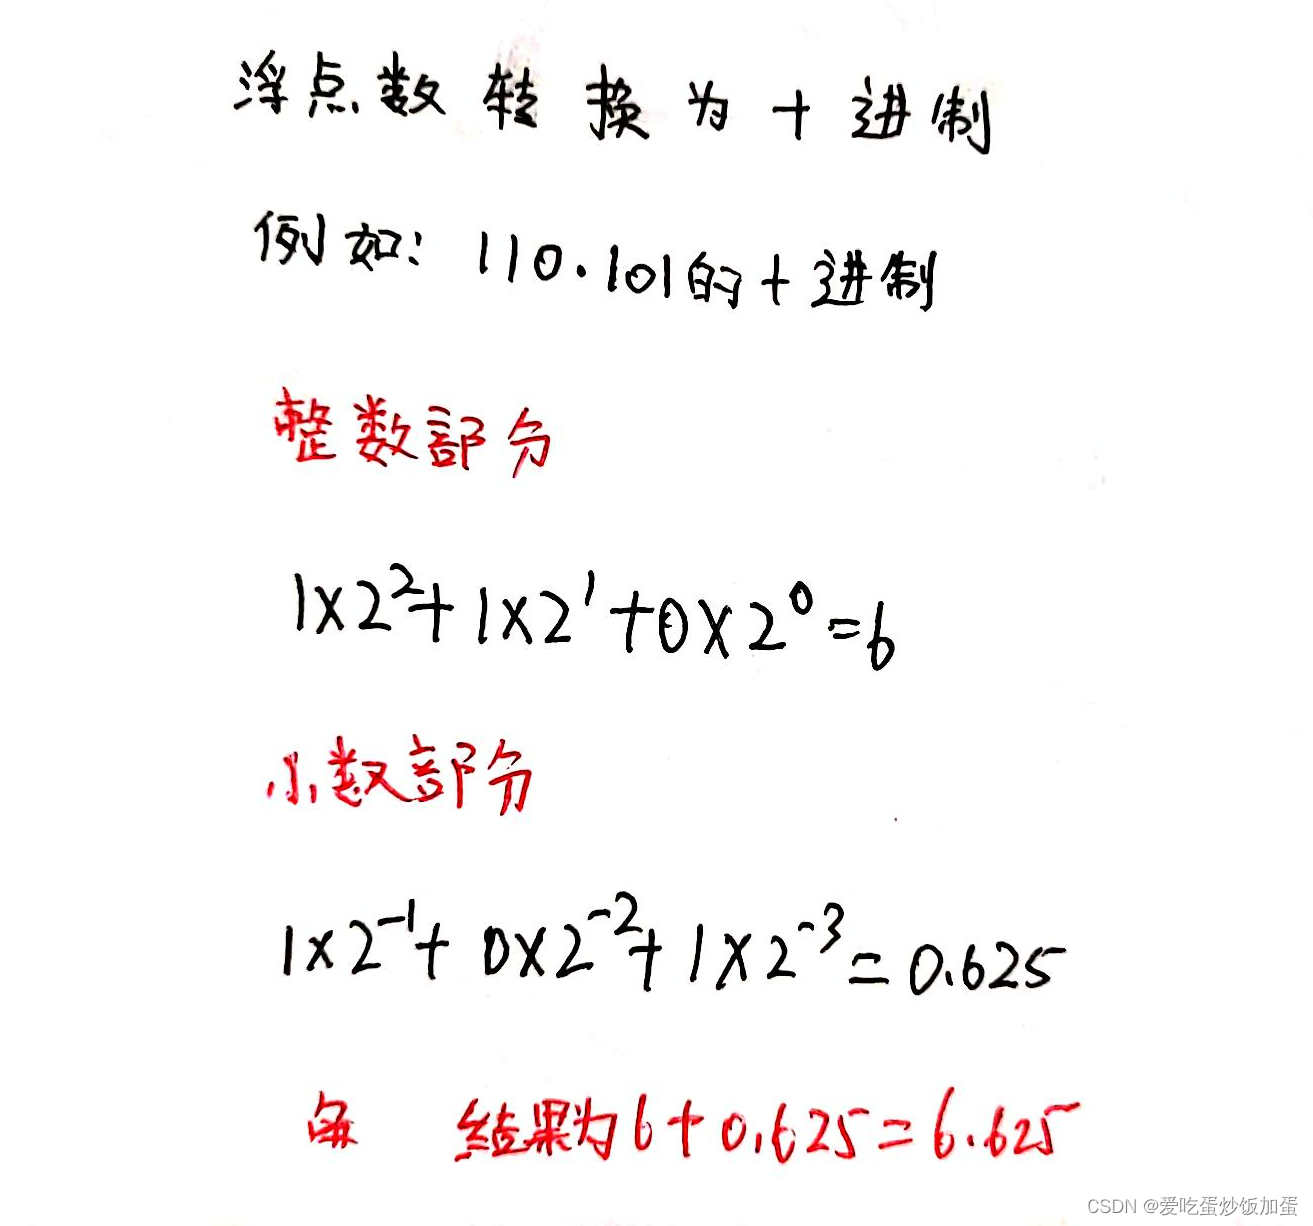 浮点数转换为十进制
例如: 110.101的十进制
整数部分
1×2²+1×2¹+0×2⁰=6
小数部分
1×2⁻¹+0×2⁻²+1×2⁻³=0.625
结果为6+0.625=6.625
CSDN @爱吃蛋炒饭加蛋